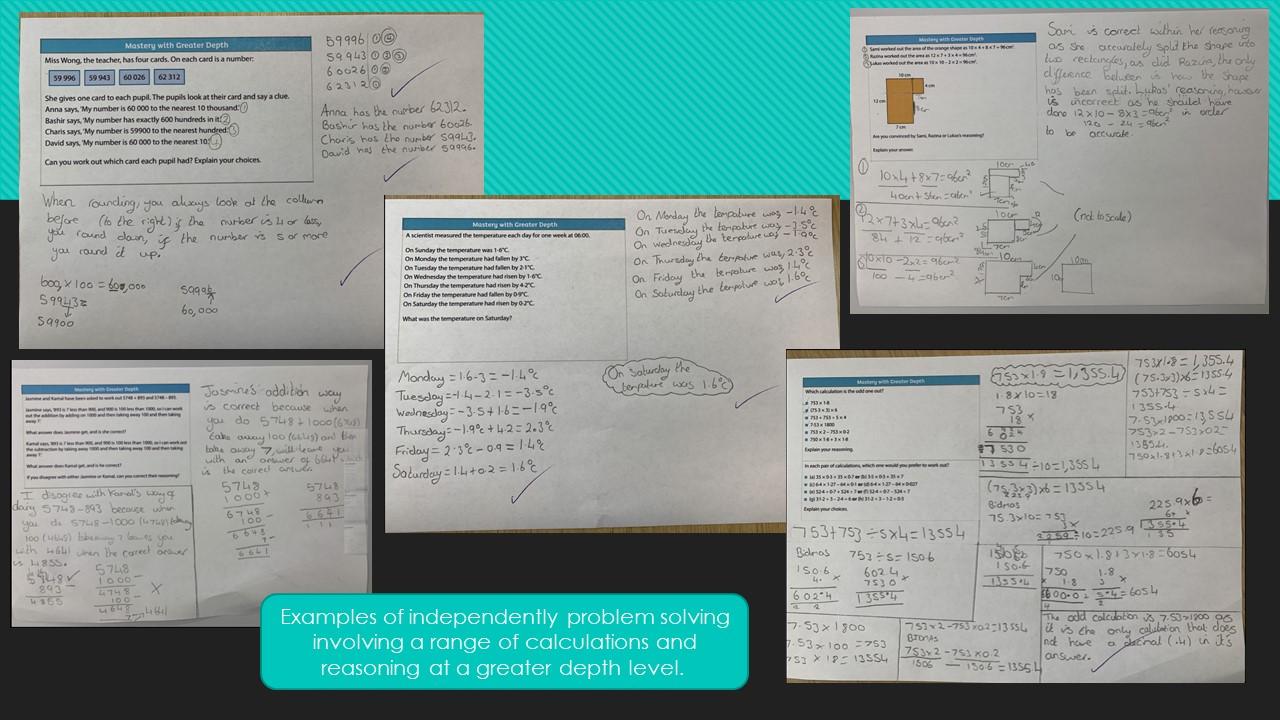 Mastery with Greater Depth
Miss Wong, the teacher, has four cards. On each card is a number:
59 996 59 943 60 026 62 312
She gives one card to each pupil. The pupils look at their card and say a clue.
Anna says, 'My number is 60 000 to the nearest 10 thousand.' 1
Bashir says, 'My number has exactly 600 hundreds in it.' 2
Charis says, 'My number is 59900 to the nearest hundred.' 3
David says, 'My number is 60 000 to the nearest 10.' 4
Can you work out which card each pupil had? Explain your choices.
59996
59943
60026
62312
Anna has the number 62312.
Bashir has the number 60026.
Charis has the number 59943.
David has the number 59996.
When rounding, you always look at the column
before (to the right) if the number is 4 or less,
you round down, if the number is 5 or more
you round it up.
600 x 100 = 600,000
59943
59900
59996
60,000
Mastery with Greater Depth
A scientist measured the temperature each day for one week at 06:00.
On Sunday the temperature was 1·6°C.
On Monday the temperature had fallen by 3°C.
On Tuesday the temperature had fallen by 2·1°C.
On Wednesday the temperature had risen by 1·6°C.
On Thursday the temperature had risen by 4·2°C.
On Friday the temperature had fallen by 0·9°C.
On Saturday the temperature had risen by 0·2°C.
What was the temperature on Saturday?
On Monday the tempature was -1.4°c
On Tuesday the tempature was -3.5°c
On Wednesday the tempature was -1.9°c
On Thursday the tempature was 2.3°c
On Friday the tempature was 1.4°c
On Saturday the tempature was 1.6°c
On Saturday the
tempature was 1.6°c
Monday = 1.6-3 = -1.4°c
Tuesday = -1.4-2.1 = -3.5°c
Wednesday = -3.5+1.6 = -1.9°c
Thursday = -1.9°c+4.2 = 2.3°c
Friday = 2.3°c-0.9 = 1.4°c
Saturday = 1.4+0.2 = 1.6°c
Mastery with Greater Depth
Sami worked out the area of the orange shape as 10 × 4 + 8 × 7 = 96cm².
Razina worked out the area as 12 × 7 + 3 × 4 = 96cm².
Lukas worked out the area as 10 × 10 – 2 × 2 = 96cm².
10 cm
4 cm
12 cm
7 cm
Are you convinced by Sami, Razina or Lukas's reasoning?
Explain your answer.
Sami is correct within her reasoning
as she accurately split the shape into
two rectangles, as did Razina, the only
difference between is how the shape
has been split. Lukas' reasoning, however
is incorrect as he should have
done 12x10 - 8x3 = 96cm² in order
to be accurate.
10x4+8x7=96cm²
12x7+3x4=96cm²
84 + 12 = 96cm²
(not to scale)
10x10-2x2=96cm²
100 - 4 = 96cm²
Mastery with Greater Depth
Jasmine and Kamal have been asked to work out 5748 + 893 and 5748 – 893.
Jasmine says, '893 is 7 less than 900, and 900 is 100 less than 1000, so I can work
out the addition by adding on 1000 and then taking away 100 and then taking
away 7.'
What answer does Jasmine get, and is she correct?
Kamal says, '893 is 7 less than 900, and 900 is 100 less than 1000, so I can work out
the subtraction by taking away 1000 and then taking away 100 and then taking
away 7.'
What answer does Kamal get, and is he correct?
If you disagree with either Jasmine or Kamal, can you correct their reasoning?
Jasmine's addition way
is correct because when
you do 5748+1000(6748)
take away 100 (6648) and then
take away 7, will leave you
with an answer of 6641 which
is the correct answer.
5748
1000+
6748
100-
6648
7-
6641
5748
893+
6641
I disagree with Kamal's way of
doing 5748-893 because when
you do 5748-1000 (4748)
100 (4648) 7 leaves you
with 4641 when the correct answer
is 4855.
5748
893
4855
5748
1000-
4748
100-
4648
7- 4641
Mastery with Greater Depth
Which calculation is the odd one out?
753 × 1·8
(75·3 × 3) × 6
753 + 753 ÷ 5 × 4
7·53 × 1800
753 × 2 – 753 × 0·2
750 × 1·8 + 3 × 1·8
Explain your reasoning.
In each pair of calculations, which one would you prefer to work out?
Explain your choices.
753x1.8=1,355.4
1.8x10=18
753
18
13554 ÷10=1,355.4
753x1.8=1,355.4
(75.3x3)x6=1355.4
753+753÷5x4=
1355.4
7.53x1800=13554
753x2-753x0.2=
1355.4
750x1.8+3x1.8=6054
(75.3x3)x6=13554
Bidmas
75.3x10=753
2259÷10=225.9
225.9x6=
1355.4
753+753÷5x4=13554
Bidmas 753÷5=150.6
150.6
4
602.4
602.4
753.0
1355.4
750x1.8+3x1.8=6054
7.53x1800
7.53x100=753
753x18=13554
753x2-753x0.2=13554
BIDMAS
753x2-753x0.2
1506 - 150.6 = 1355.4
The odd calculation is 7.53x1800 as
it is the only calulation that does
not have a decimal (.4) in it's
answer.
Examples of independently problem solving
involving a range of calculations and
reasoning at a greater depth level.